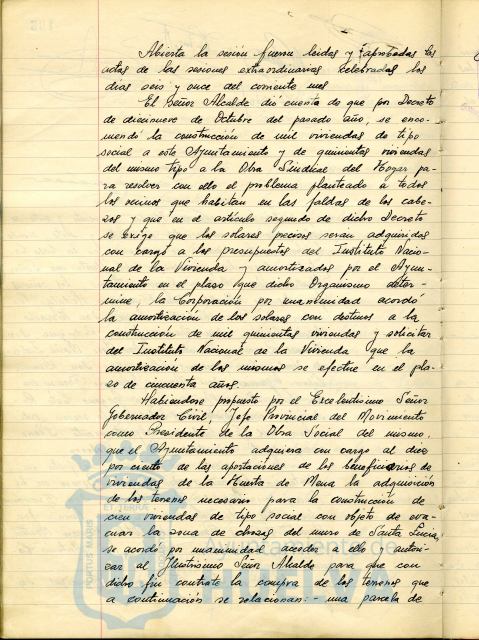 Abierta la sesión fueron leidas y aprobadas las
actas de las sesiones extraordinarias celebradas los
dias seis y once del corriente mes
El Señor Alcalde dió cuenta de que por Decreto
de diecinueve de Octubre del pasado año, se enco-
mendó la construcción de mil viviendas de tipo
social a este Ayuntamiento y de quinientas viviendas
del mismo tipo a la Obra Sindical del Hogar pa-
ra resolver con ello el problema planteado a todos
los vecinos que habitan en las faldas de los cabe-
zos y que en el artículo segundo de dicho Decreto
se exige que los solares precisos seran adquiridos
con cargo a los presupuestos del Instituto Nacio-
nal de la Vivienda y amortizados por el Ayun-
tamiento en el plazo que dicho Organismo deter-
mine, la Corporación por unanimidad acordó
la amortización de los solares con destino a la
construcción de mil quinientas viviendas y solicitar
del Instituto Nacional de la Vivienda que la
amortización de los mismos se efectue en el pla-
zo de cincuenta años.
Habiendose propuesto por el Excelentísimo Señor
Gobernador Civil, Jefe Provincial del Movimiento
como Presidente de la Obra Social del mismo,
que el Ayuntamiento adquiera con cargo al diez
por ciento de las aportaciones de los beneficiarios de
viviendas de la Huerta de Mena la adquisición
de los terrenos necesario para la construcción de
cien viviendas de tipo social con objeto de eva-
cuar la zona de chozas del muro de Santa Lucia,
se acordo por unanimidad acceder a ello y autori-
zar al Ilustrísimo Señor Alcalde para que con
dicho fin contrate la compra de los terrenos que
a continuación se relacionan:- una parcela de
PORTUS MARIS
ET TERRAE
Ayuntamiento de